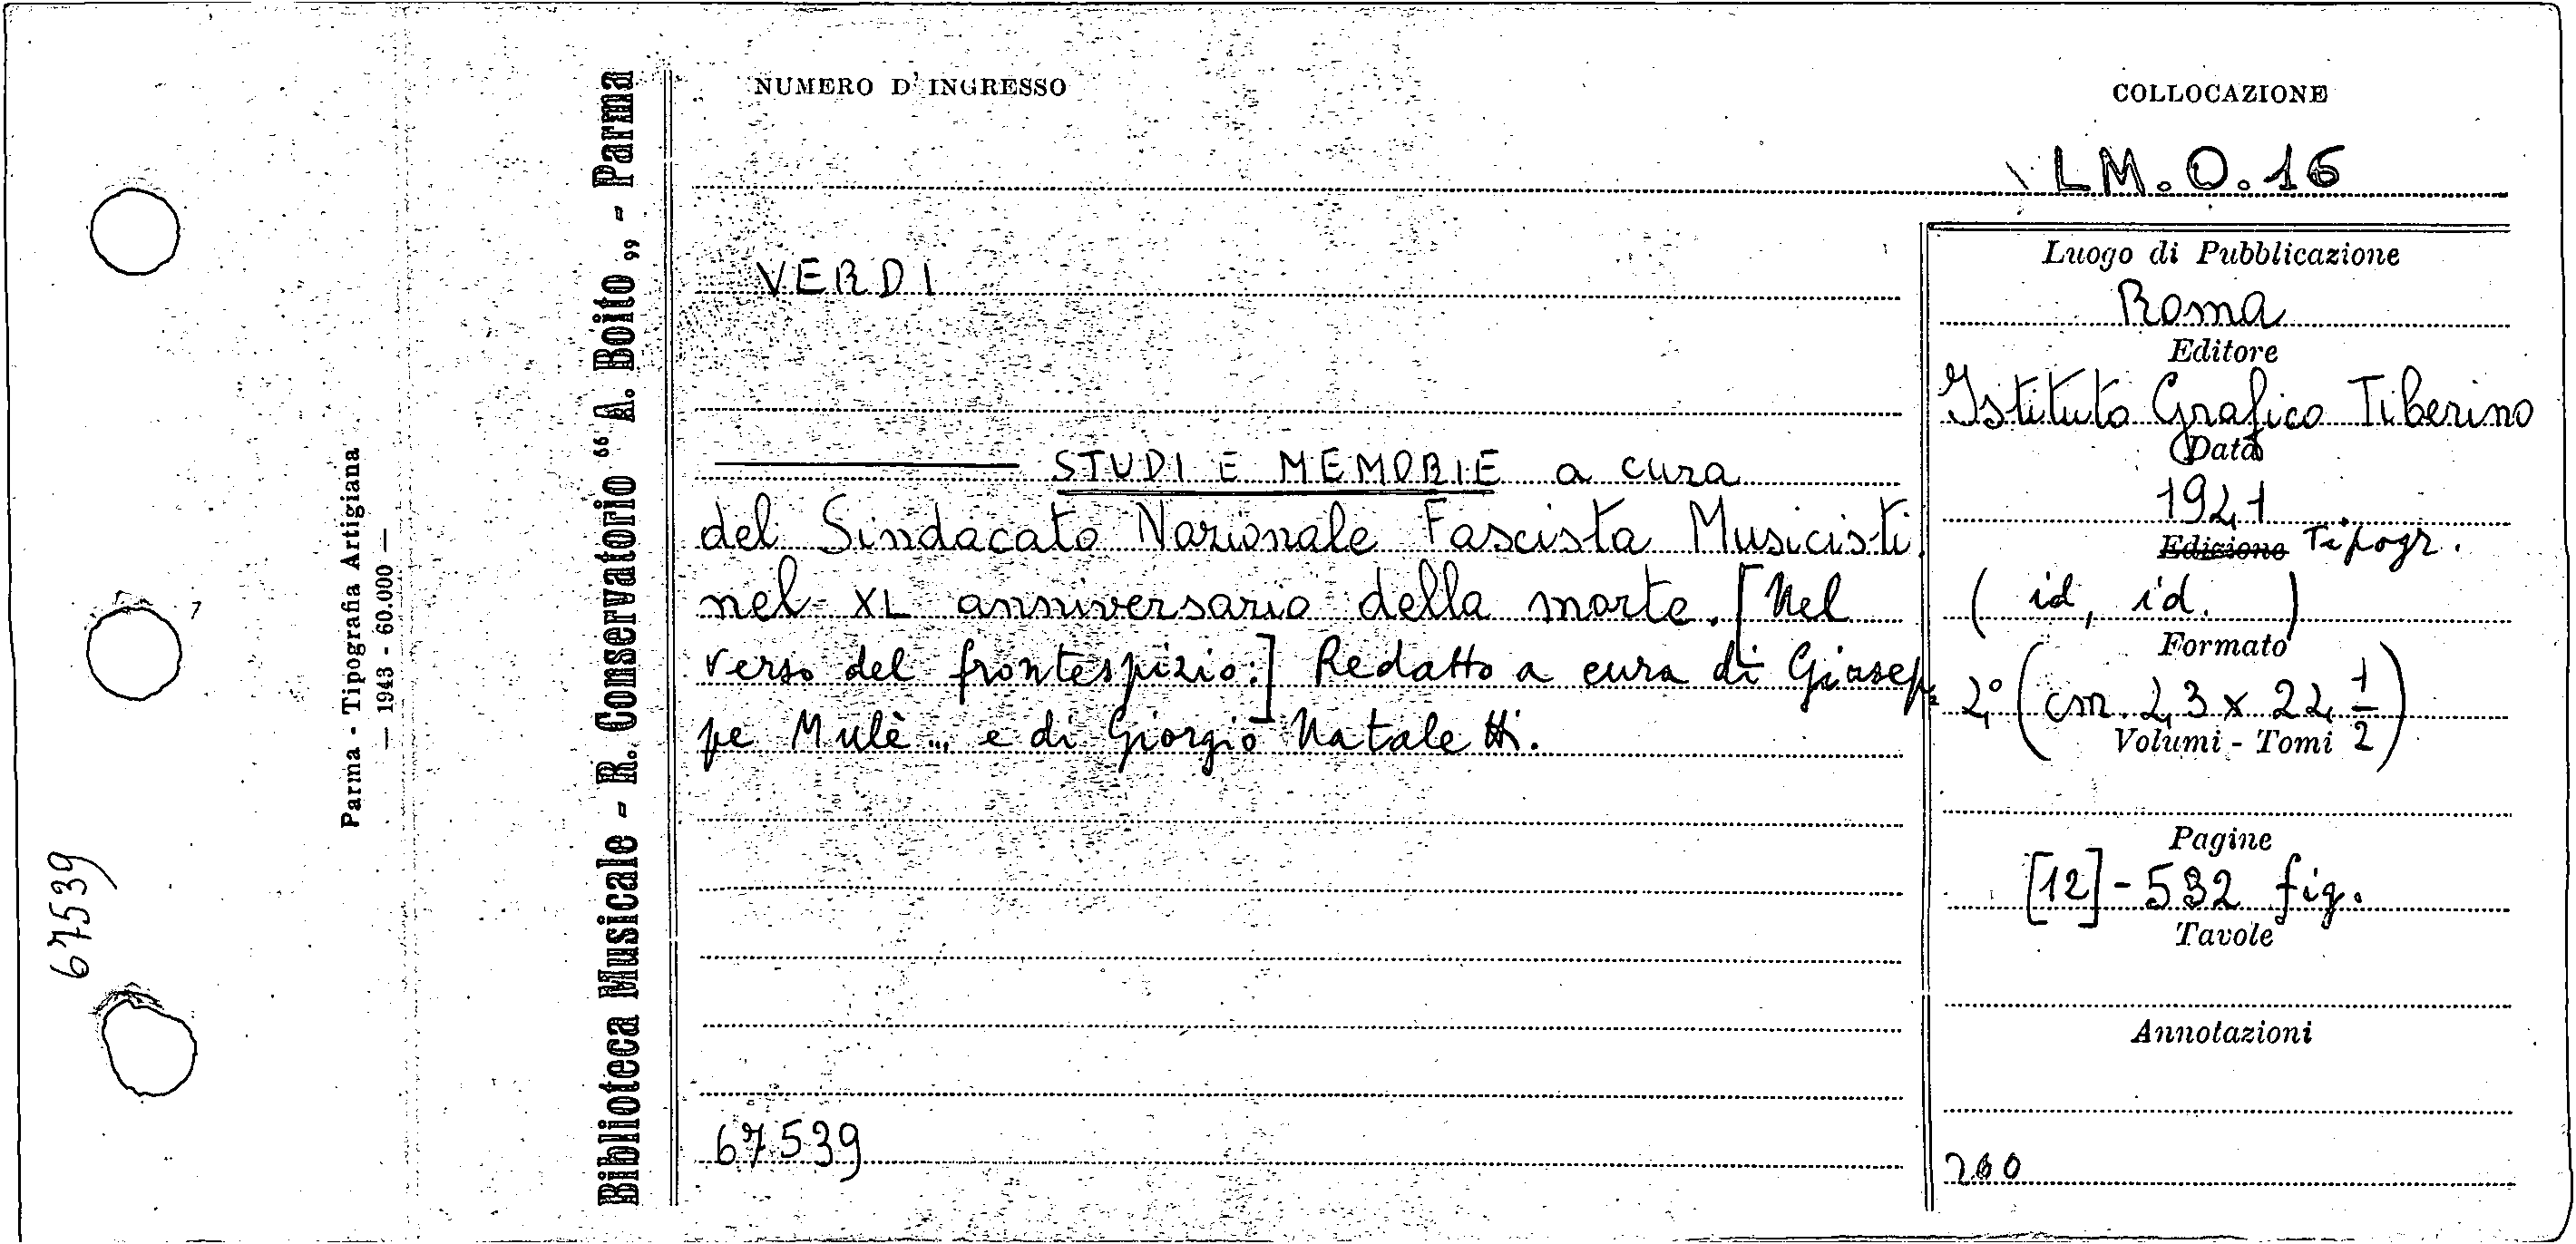 NUMERO D'INGRESSO
COLLOCAZIONE
LM.O.16
VERDI
STUDI E MEMORIE a cura
del Sindacato Nazionale Fascista Musicisti
nel XL anniversario della morte. [Nel
verso del frontespizio:] Redatto a cura di Giusep=
pe Mulè... e di Giorgio Nataletti.
67539
Luogo di Pubblicazione
Roma
Editore
Istituto Grafico Tiberino
Data
1941
Edizione Tipogr.
( id, id. )
Formato
2° (cm. 23 x 22 1/2)
Volumi - Tomi
Pagine
[12] - 532 fig.
Tavole
Annotazioni
260
Biblioteca Musicale - R. Conservatorio “ A. Boito „ - Parma
Parma - Tipografia Artigiana
— 1943 - 60.000 —
67539